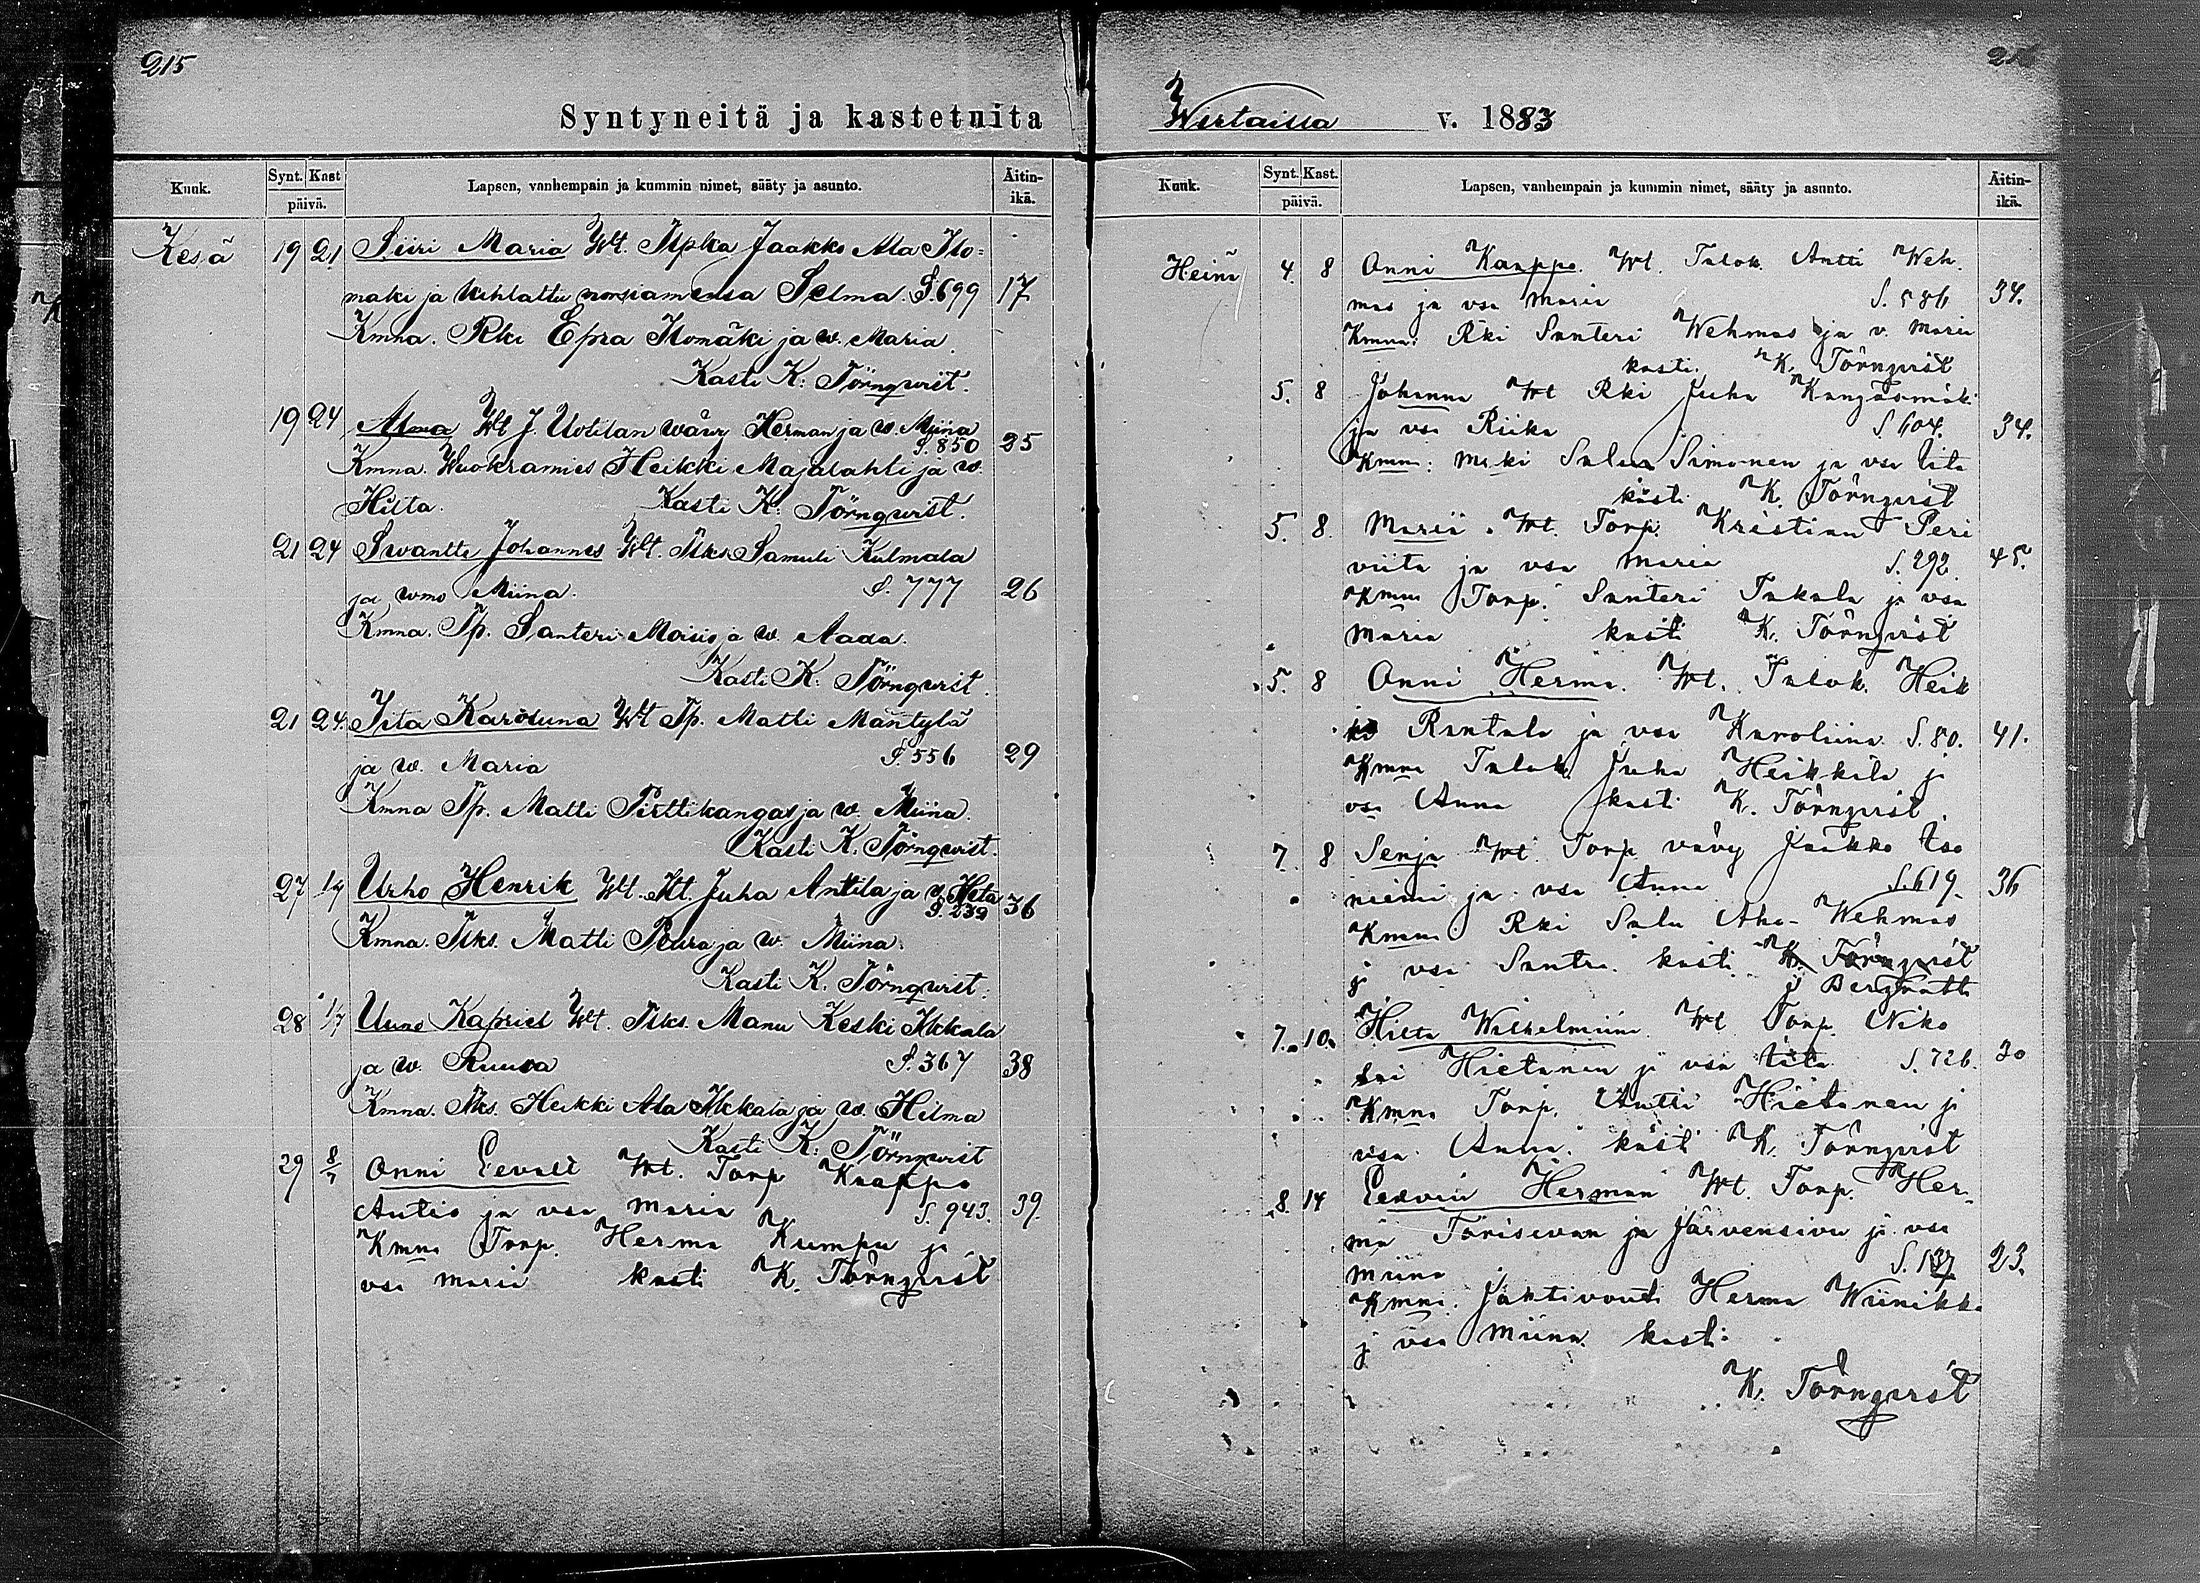 215
Syntyneitä ja kastetuita
Kuuk.
Synt. Kast
päivä.
Lapsen, vanhempain ja kummin nimet, sääty ja asunto.
Äitin-
ikä.
Kesä 19 21 Siiri Maria Wt. Jaakko Ala Ito=
mäki ja kihlattu morsiamensa Selma. S. 699 17
Kmna. Rki Epra Itomäki ja w. Maria.
Kasti K. Törnqwist.
19 24 Alma Wt J. Uotilan wävy Herman ja w. Miina
S. 850 25
Kmna. Wuokramies Heikki Majalahti ja w.
Hilta. Kasti K. Törnqwist.
21 24 Swantte Johannes Wt. Samuli Kulmala
ja wmo Miina. S. 777 26
Kmna. Tp. Santeri Moisio ja w. Aada.
Kasti K. Törnqwist.
21 24. Iita Karoliina Wt Tp. Matti Mäntylä
ja w. Maria S. 556 29
Kmna Tp. Matti Pirttikangas ja w. Miina.
Kasti K. Törnqwist.
27 1/7 Urho Henrik Wt. Itt. Juha Anttila ja w. Heta
S. 239 36
Kmna. Matti Peura ja w. Miina.
Kasti K. Törnqwist.
28 1/7 Uuno Kapriel Wt. Manu Keski Ikkala
ja w. Ruusa S. 367 38
Kmna. Heikki Ala Ikkala ja w. Hilma
Kasti K. Törnqwist
29 8/7 Onni Eevalt Wt. Torp Kaappo
Autio ja vsa Maria S. 943. 39
Kmna Torp. Herma Kumpu ja
vsa Maria kasti K. Törnqvist
Wirtaissa v. 1883
Kuuk.
Synt. Kast.
päivä.
Lapsen, vanhempain ja kummin nimet, sääty ja asunto.
Äitin-
ikä.
Heinä 4. 8 Onni Kaappo. Wt. Talok. Antti Weh-
mas ja vsa Maria S. 586 34.
Kmna. Rki Santeri Wehmas ja v. Maria
kasti. K. Törnqvist
5. 8 Johanna Wt Rki Juha Kangasmäki
ja vsa Riika S. 604. 34.
Kmna: Mäki Salu Simonen ja vsa Iita
kasti K. Törnqvist
5. 8. Maria. Wt. Torp. Kristian Peri
viita ja vsa Maria S. 292 45.
Kmna Torp. Santeri Takala ja vsa
Maria kasti K. Törnqvist
5. 8 Onni Herma. Wt. Talok. Heik
ki Rantala ja vsa Karoliina. S. 80. 41.
Kmna Talok. Juha Heikkilä j
vsa Anna kasti K. Törnqvist.
7 8 Senja Wt. Torp vävy Jaakko Iso
niemi ja vsa Anna S. 619. 36
Kmna. Rki Salu Aho-Wehmas
j vsa Santra. kasti K. Törnqvist
j Bergbatt
7. 10. Hilta Wilhelmiina Wt Torp. Niko
lai Hietanen j vsa Iita S. 726. 30
Kmna Torp. Antti Hietanen j
vsa Anna. kasti K. Törnqvist
8. 14 Eedvin Herman Wt. Torp. Her-
ma Torisevan ja Järvensivu j vsa
Miina S. 137 23.
Kmna. Jahtivouti Herma Wiinikka
j vsa Miina kasti
K. Törnqvist